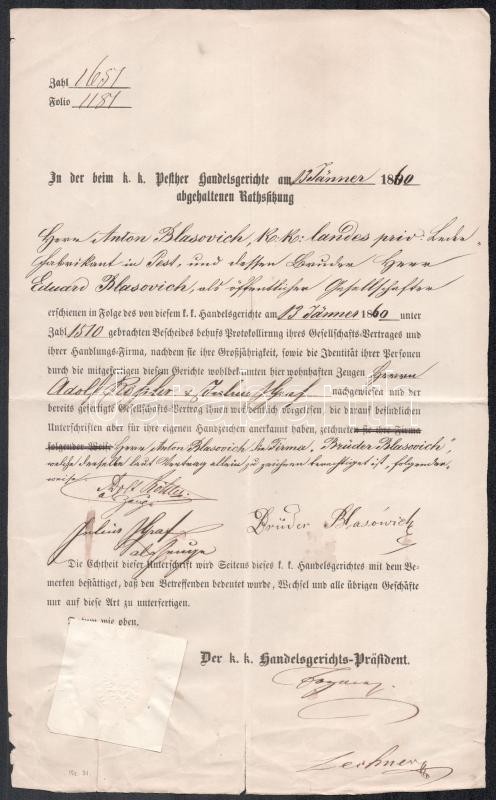 Zahl 1651
Folio 1181
In der beim k. k. Pesther Handelsgerichte am 13 Jänner 1860
abgehaltenen Rathssitzung
Herr Anton Blasovich, k. k. landes priv. Leder-
fabrikant in Pest, und dessen Bruder Herr
Eduard Blasovich, als öffentlicher Gesellschafter
erschienen in Folge des von diesem k. k. Handelsgerichte am 13 Jänner 1860 unter
Zahl 1510 gebrachten Bescheides behufs Protokollirung ihres Gesellschafts-Vertrages und
ihrer Handlungs-Firma, nachdem sie ihre Großjährigkeit, sowie die Identität ihrer Personen
durch die mitgefertigten diesem Gerichte wohlbekannten hier wohnhaften Zeugen Herrn
Adolf Köhler & Julius Graf nachgewiesen und der
bereits gefertigte Gesellschafts-Vertrag ihnen wiederholt vorgelesen, die darauf befindlichen
Unterschriften aber für ihre eigenen Handzeichen anerkannt haben, zeichnet er sie ihre Firma
folgender Weise Herr Anton Blasovich die Firma „Brüder Blasovich",
welche derselbe laut Vertrag allein zu zeichnen berechtiget ist, folgender-
weise
als Zeuge
Julius Graf
als Zeuge
Brüder Blasowich
Die Echtheit dieser Unterschrift wird Seitens dieses k. k. Handelsgerichtes mit dem Be-
merken bestättiget, daß den Betreffenden bedeutet wurde, Wechsel und alle übrigen Geschäfte
nur auf diese Art zu unterfertigen.
Datum wie oben.
Der k. k. Handelsgerichts-Präsident.
Lechner